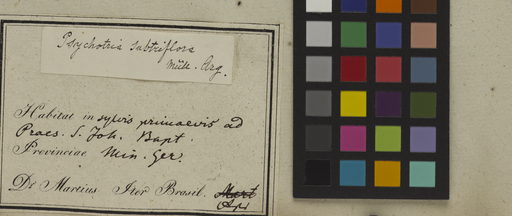 Psychotria subtriflora
Müll. Arg.
Habitat in sylvis primaevis ad
Praes. S. Joh. Bapt.
Provinciae Min. Ger.
Dr Martius Iter Brasil.